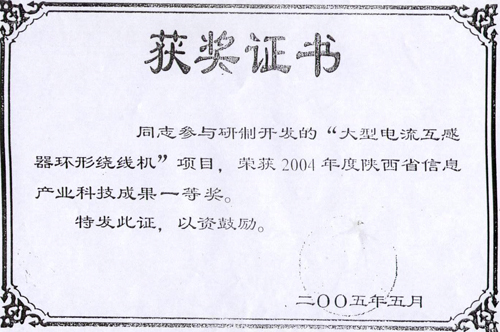 获奖证书
同志参与研制开发的“大型电流互感
器环形绕线机”项目，荣获2004年度陕西省信息
产业科技成果一等奖。
特发此证，以资鼓励。
二〇〇五年五月